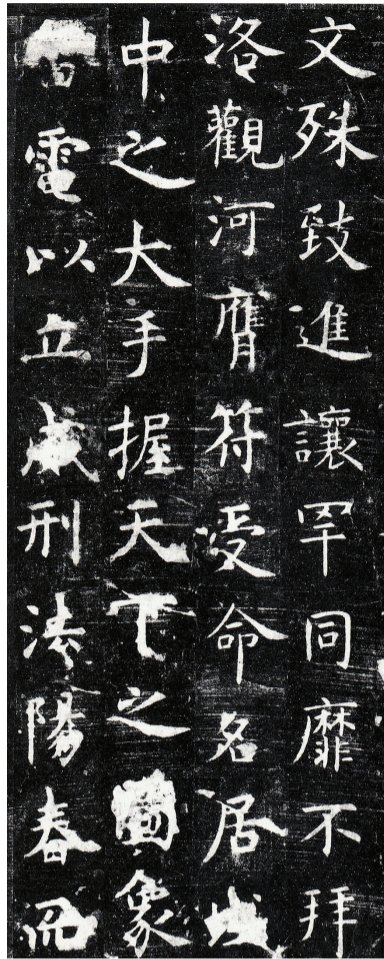 文殊致進讓罕同靡不拜
洛觀河膺符受命名居域
中之大手握天下之圖象
雷電以立威刑法陽春而